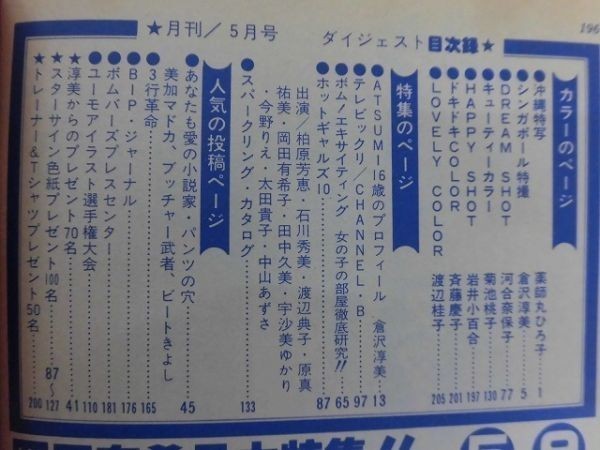 196
★月刊/5月号 ダイジェスト目次録★
カラーのページ
沖縄特写 薬師丸ひろ子 1
シンガポール特撮 倉沢淳美 5
DREAM SHOT 河合奈保子 77
キューティーカラー 菊池桃子 130
HAPPY SHOT 岩井小百合 197
ドキドキCOLOR 斉藤慶子 201
LOVELY COLOR 渡辺桂子 205
特集のページ
ATSUMI 16歳のプロフィール 倉沢淳美 13
テレビックリ/CHANNEL・B 97
ボム!エキサイティング 女の子の部屋徹底研究!! 65
ホットギャルズ10 87
出演・柏原芳恵・石川秀美・渡辺典子・原真
祐美・岡田有希子・田中久美・宇沙美ゆかり
・今野りえ・太田貴子・中山あずさ
スパークリング・カタログ 133
人気の投稿ページ
あなたも愛の小説家・パンツの穴 45
美加マドカ、ブッチャー武者、ビートきよし
3行革命 165
BIP・ジャーナル 176
ボムバーズプレスセンター 181
ユーモアイラスト選手権大会 110
淳美からのプレゼント70名 41
スターサイン色紙プレゼント100名 87〜127
トレーナー&Tシャツプレゼント50名 200